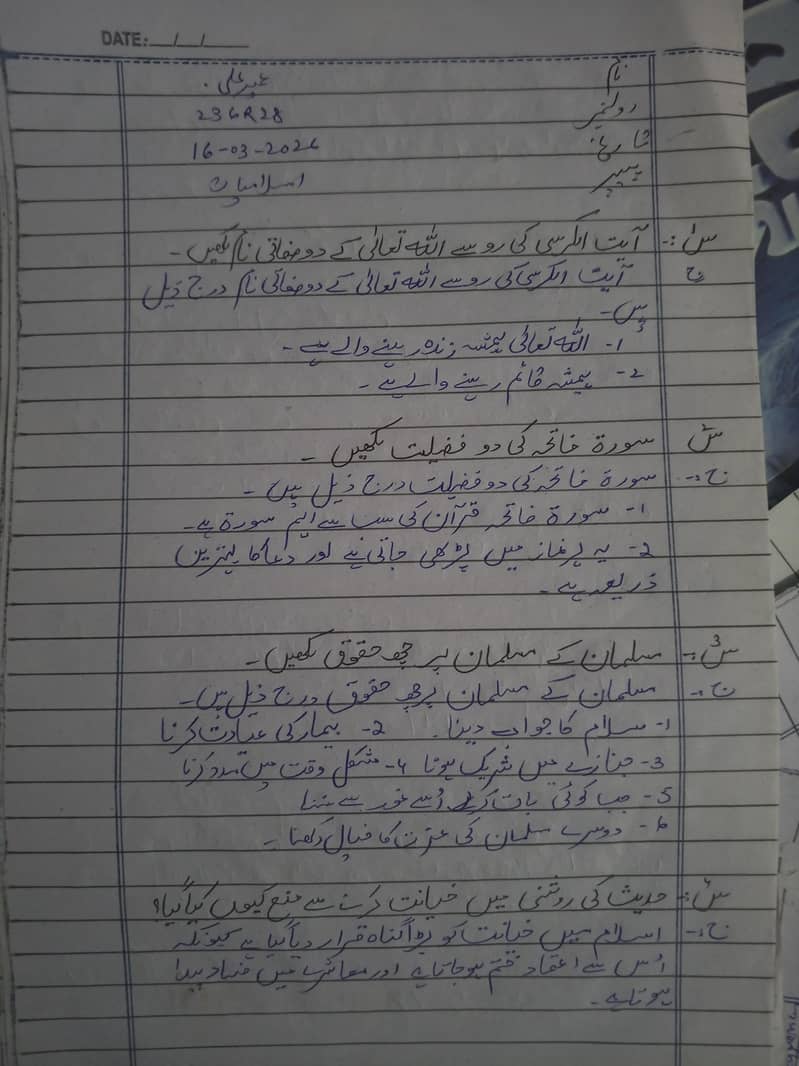 DATE:__/__/____
نام عبیر علی
رولنمبر 236R28
تاریخ: 16-03-2026
پیپر اسلامیات
س۱:- آیت الکرسی کی رو سے اللہ تعالٰی کے دو صفاتی نام لکھیں۔
ج آیت الکرسی کی رو سے اللہ تعالٰی کے دو صفاتی نام درج ذیل
ہیں۔
1- اللہ تعالٰی ہمیشہ زندہ رہنے والے ہے۔
2- ہمیشہ قائم رہنے والے ہے۔
س۲ سورۃ فاتحہ کی دو فضیلت لکھیں۔
ج:- سورۃ فاتحہ کی دو فضیلت درج ذیل ہیں۔
1- سورۃ فاتحہ قرآن کی سب سے اہم سورۃ ہے۔
2- یہ ہر نماز میں پڑھی جاتی ہے اور دعا کا بہترین
ذریعہ ہے۔
س۳:- مسلمان کے مسلمان پر چھ حقوق لکھیں۔
ج:- مسلمان کے مسلمان پر چھ حقوق درج ذیل ہیں۔
1- سلام کا جواب دینا۔ 2- بیمار کی عیادت کرنا
3- جنازے میں شریک ہونا 4- مشکل وقت میں مدد کرنا
5- جب کوئی بات کرے اُسے غور سے سننا
6- دوسرے مسلمان کی عزت کا خیال رکھنا۔
س۴:- حدیث کی روشنی میں خیانت کرنے سے منع کیوں کیا گیا؟
ج:- اسلام میں خیانت کو بڑا گناہ قرار دیا گیا ہے کیونکہ
اُس سے اعتماد ختم ہو جاتا ہے اور معاشرے میں فساد پیدا
ہوتا ہے۔